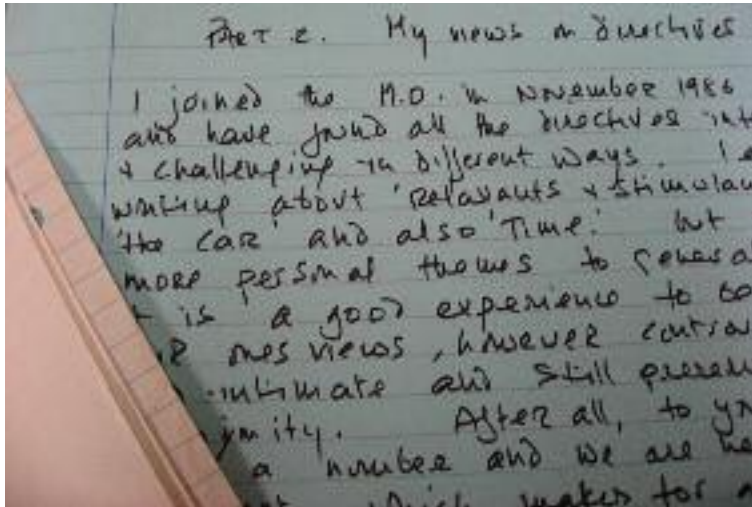 Part 2. My views on directives
I joined the M.O. in November 1986
and have found all the directives int
& challenging in different ways. I e
writing about 'Relaxants & Stimulan
'the Car' and also 'Time'. but
more personal themes to
t is a good experience to be
ones views, however contro
intimate and still preserv
ymity. After all, to yo
a number and we are ne
which makes for a